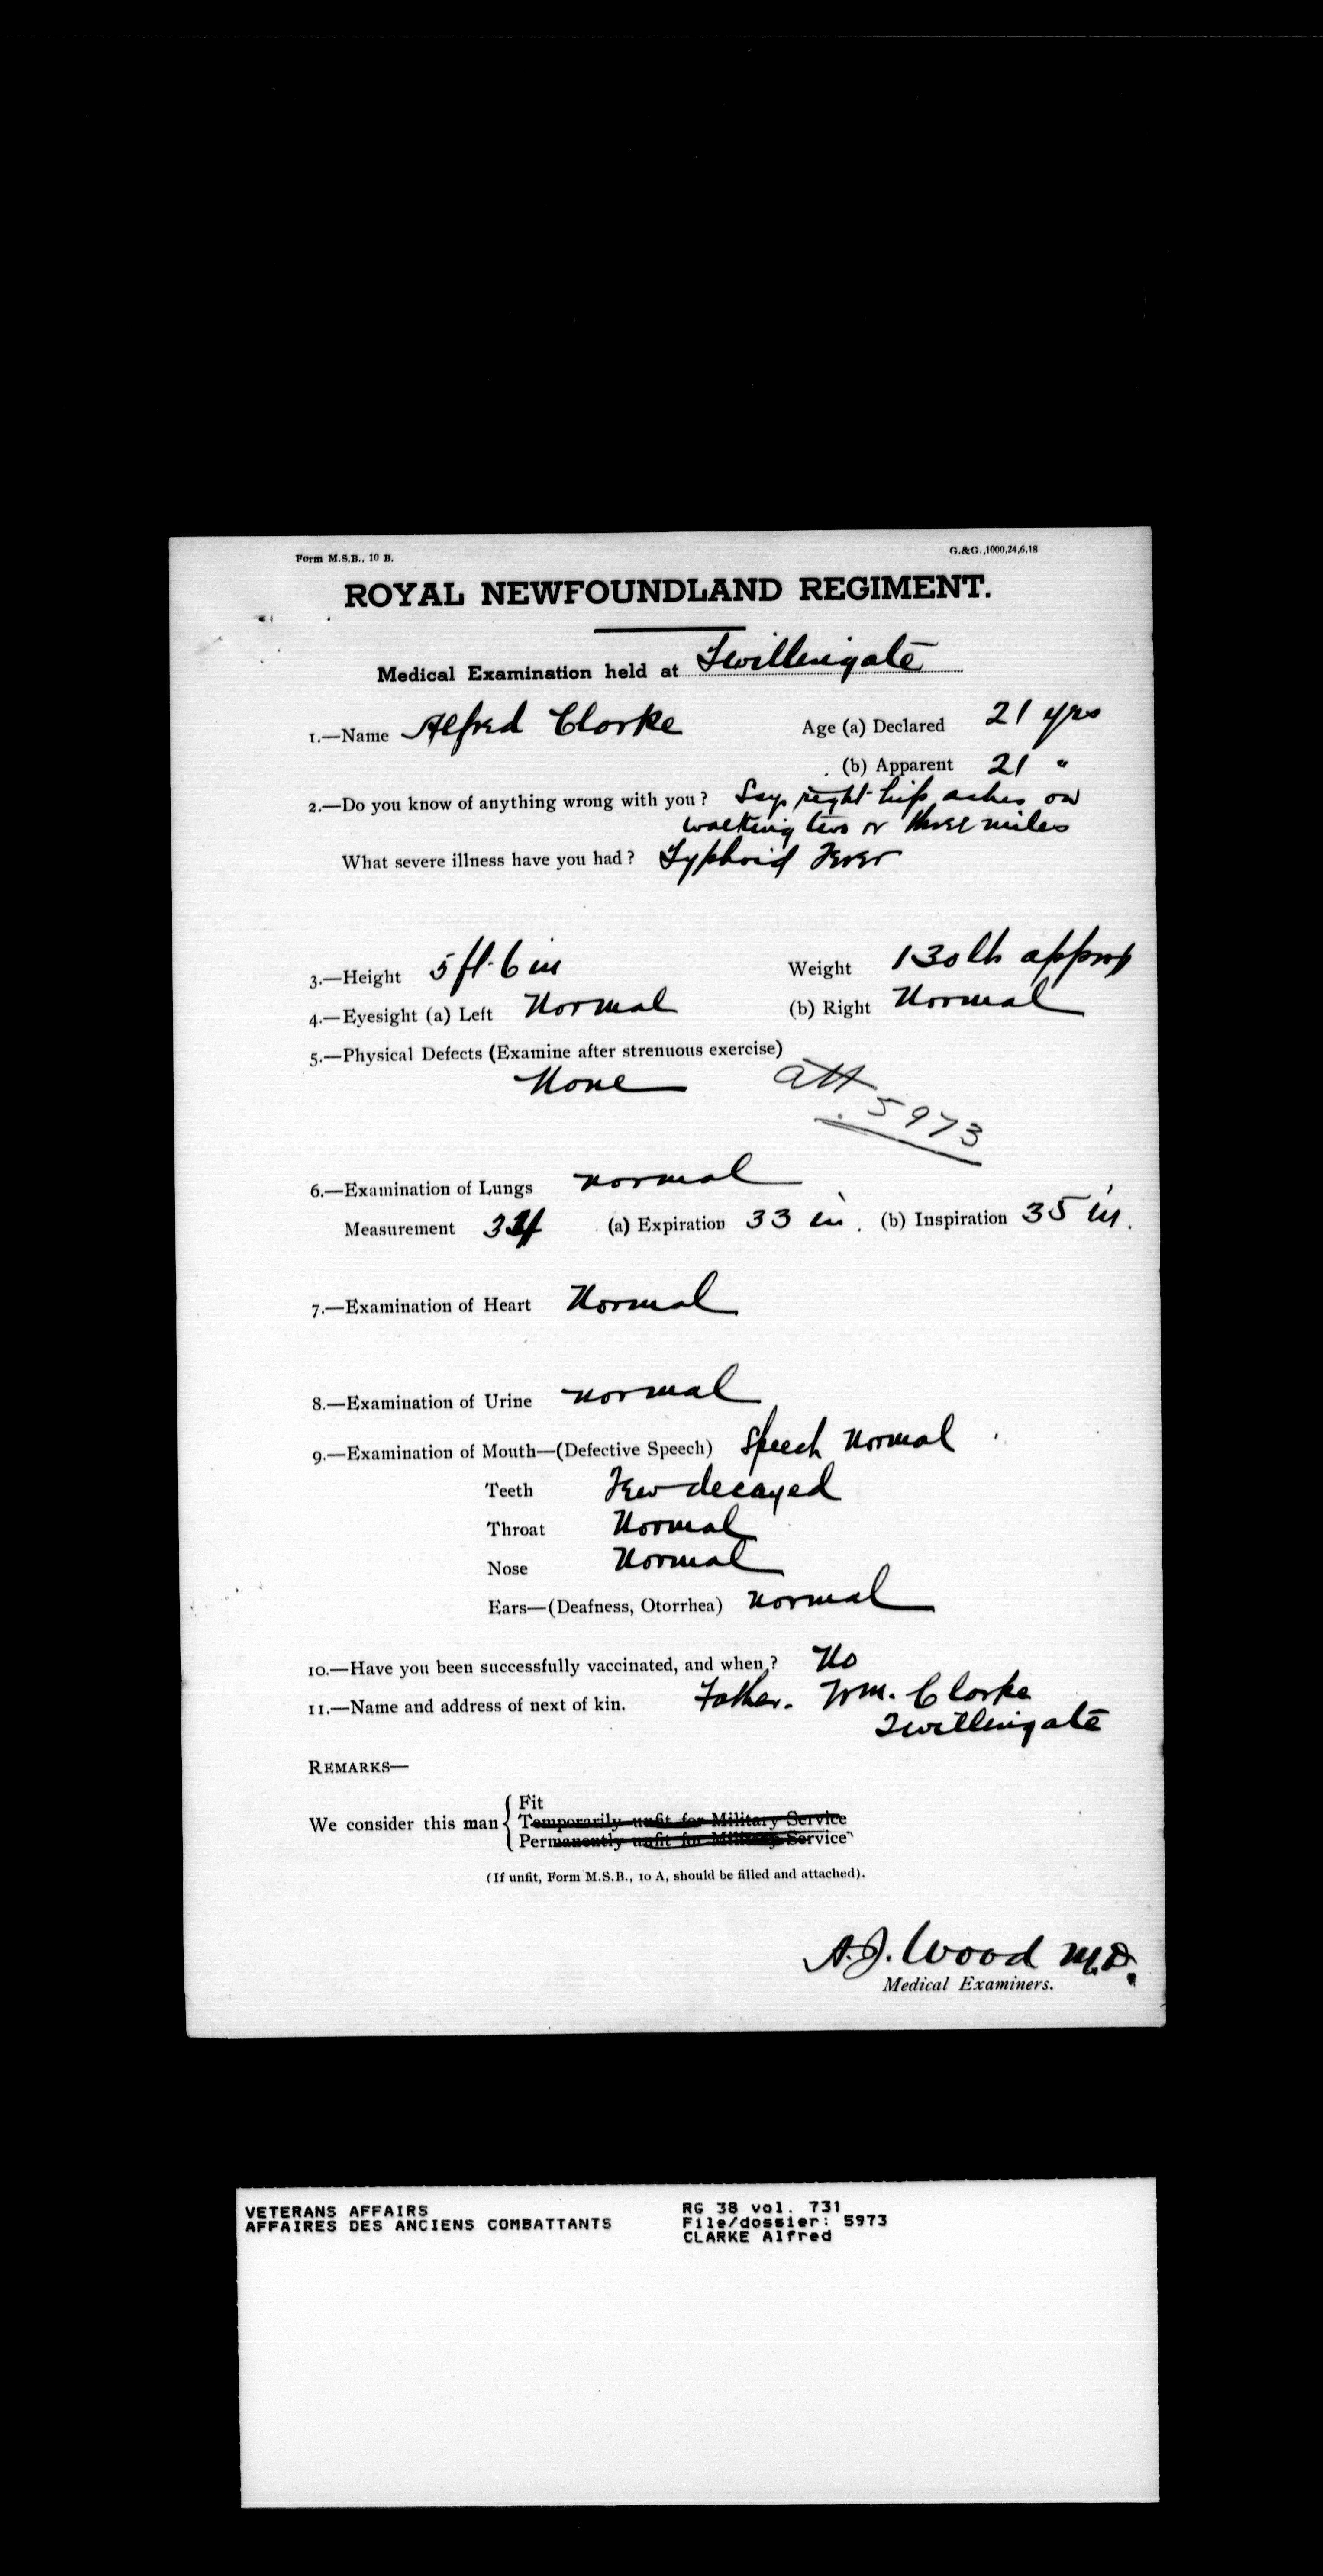 Form M.S.B., 10 B.
G.&G.,1000,24,6,18
ROYAL NEWFOUNDLAND REGIMENT.
Medical Examination held at Twillingate
1.—Name Alfred Clarke Age (a) Declared 21 yrs
(b) Apparent 21 "
2.—Do you know of anything wrong with you? Says right hip aches on
walking two or three miles
What severe illness have you had? Typhoid Fever
3.—Height 5 ft. 6 in Weight 130 lb approx
4.—Eyesight (a) Left Normal (b) Right Normal
5.—Physical Defects (Examine after strenuous exercise)
None att
5973
6.—Examination of Lungs normal
Measurement 34 (a) Expiration 33 in. (b) Inspiration 35 in.
7.—Examination of Heart Normal
8.—Examination of Urine normal
9.—Examination of Mouth—(Defective Speech) Speech Normal
Teeth Few decayed
Throat Normal
Nose Normal
Ears—(Deafness, Otorrhea) normal
10.—Have you been successfully vaccinated, and when? No
11.—Name and address of next of kin. Father. Wm. Clarke
Twillingate
REMARKS—
We consider this man
Fit
Temporarily unfit for Military Service
Permanently unfit for Military Service
(If unfit, Form M.S.B., 10 A, should be filled and attached).
A.J. Wood M.D.
Medical Examiners.
VETERANS AFFAIRS RG 38 vol. 731
AFFAIRES DES ANCIENS COMBATTANTS File/dossier: 5973
CLARKE Alfred